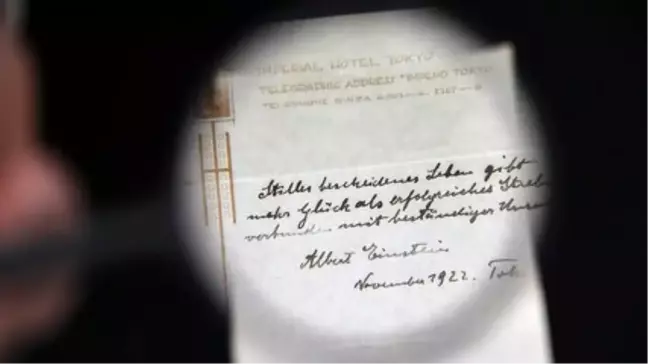 IMPERIAL HOTEL TOKYO
TELEGRAPHIC ADDRESS TOKYO
Stilles bescheidenes Leben gibt
mehr Glück als erfolgreiches Streb
verbunden mit beständiger Unru
Albert Einstein
November 1922. Tok